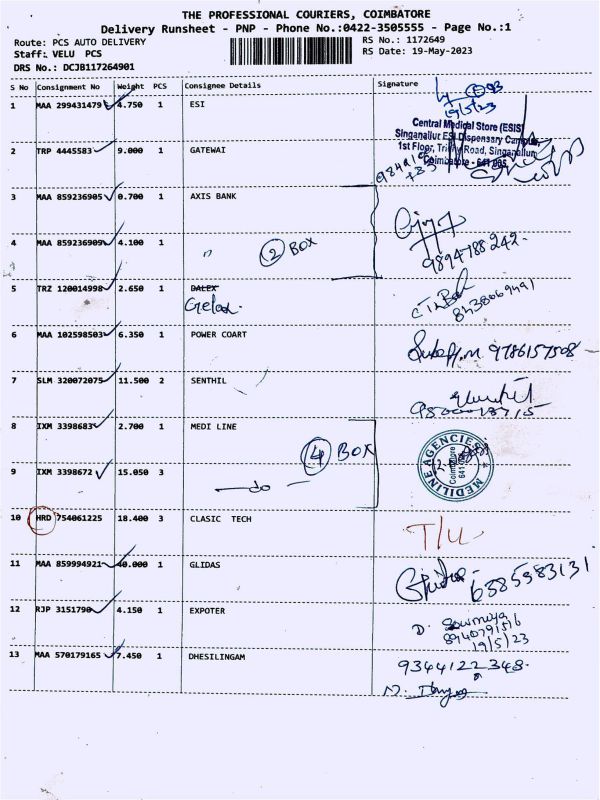 THE PROFESSIONAL COURIERS, COIMBATORE
Delivery Runsheet - PNP - Phone No.:0422-3505555 - Page No.:1
Route: PCS AUTO DELIVERY
RS No.: 1172649
Staff: VELU PCS
RS Date: 19-May-2023
DRS No.: DCJB117264901
S No Consignment No Weight PCS Consignee Details Signature
1 MAA 299431479 4.750 1 ESI
19/5/23
Central Medical Store (ESIS)
Singanallur ESI Dispensary Campus,
1st Floor, Trichy Road, Singanallur
Coimbatore - 641 005
2 TRP 4445583 9.000 1 GATEWAI
3 MAA 859236905 0.700 1 AXIS BANK
4 MAA 859236909 4.100 1 " 2 BOX
9894788242
5 TRZ 120014998 2.650 1 DALEX
6 MAA 102598503 6.350 1 POWER COART
9786157508
7 SLM 320072075 11.500 2 SENTHIL
8 IXM 3398683 2.700 1 MEDI LINE
4 BOX
MEDILINE AGENCIES
Coimbatore
9 IXM 3398672 15.050 3 do
10 HRD 754061225 18.400 3 CLASIC TECH T/U
11 MAA 859994921 40.000 1 GLIDAS
6385983131
12 RJP 3151790 4.150 1 EXPOTER
D. Sowmya
8940791516
19/5/23
13 MAA 570179165 7.450 1 DHESILINGAM
9344122348